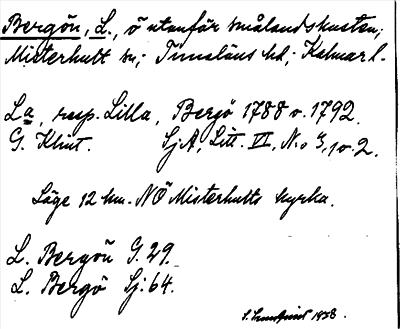 Bergön, L., ö utanför Smålandskusten;
Misterhult sn; Tunaläns hd; Kalmar l.
La, resp. Lilla, Bergö 1788 o. 1792.
G. Klint. SjA, Litt. VI, N:o 3, 10. 2.
Läge 12 km. NÖ Misterhults kyrka.
L. Bergön G. 29.
L. Bergö Sj. 64.
1928.